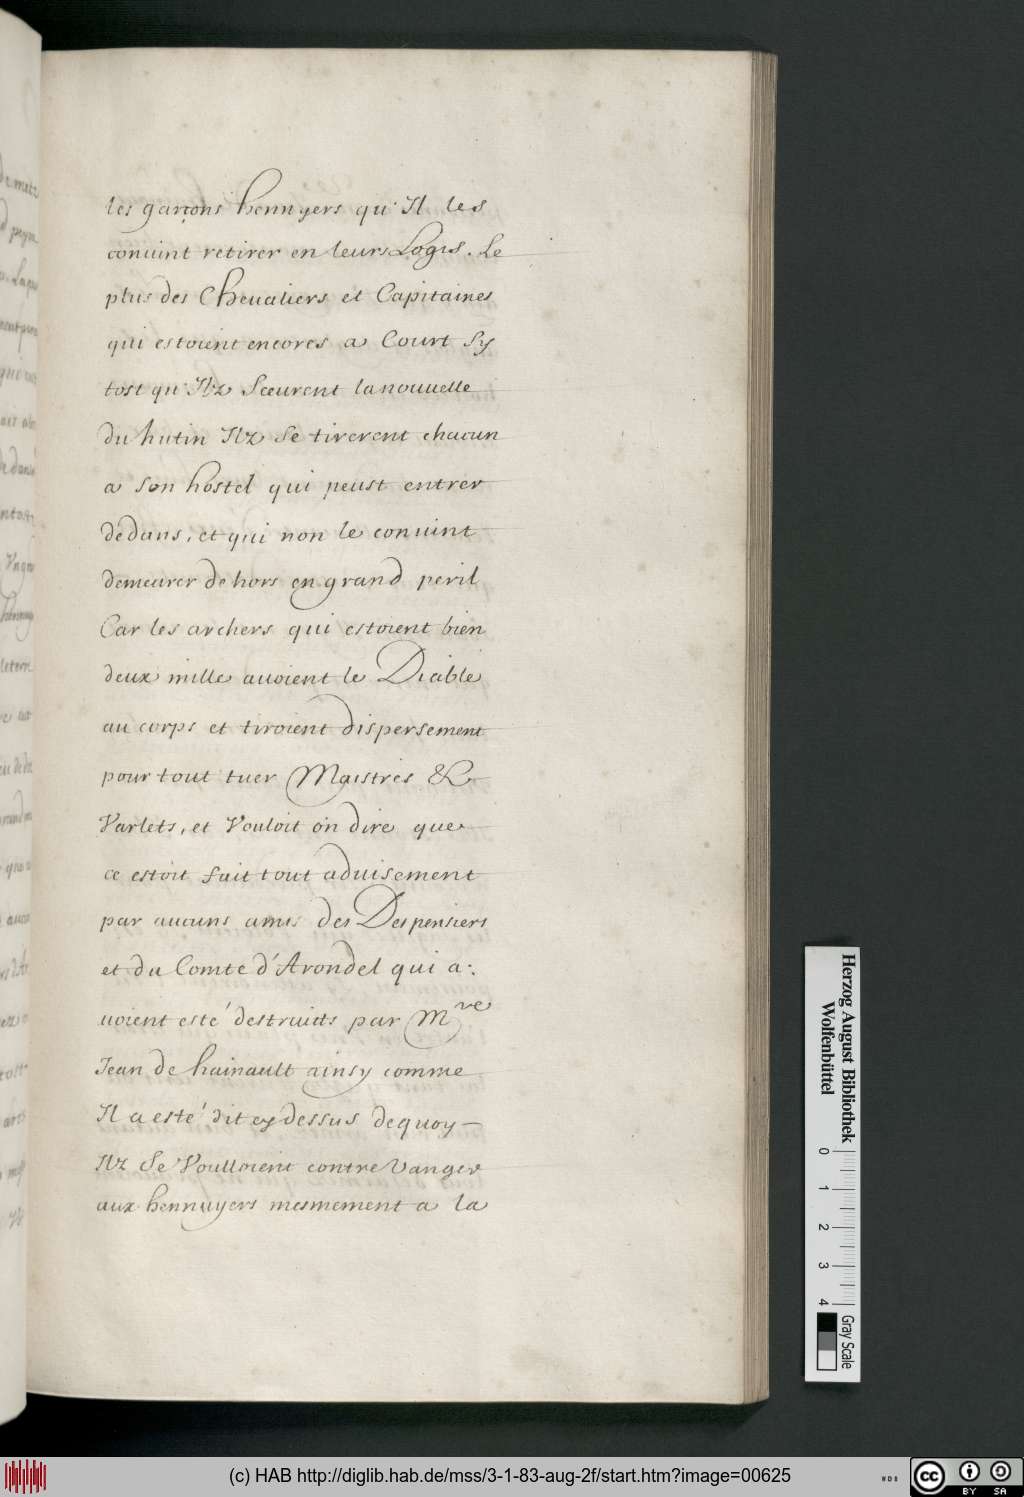 les garçons hennyers qu'Il les
conuint retirer en leurs Logis. Le
plus des Cheualiers et Capitaines
qui estoient encores a Court Sy
tost qu'Ilz Sceurent la nouuelle
du hutin Ilz Se tirerent chacun
a son hostel qui peust entrer
dedans, et qui non le conuint
demeurer dehors en grand peril
Car les archers qui estoient bien
deux mille auoient le Diable
au corps et tiroient dispersement
pour tout tuer Maistres &
Varlets, et Vouloit on dire que
ce estoit fait tout aduisement
par aucuns amis des Despensiers
et du Comte d'Arondel qui a:
uoient esté destruicts par Mre
Jean de hainault ainsy comme
Il a esté dit cy dessus de quoy
Ilz Se Voulloient contre Vanger
aux hennuyers mesmement a la
Herzog August Bibliothek
Wolfenbüttel
0 1 2 3 4
Gray Scale
(c) HAB http://diglib.hab.de/mss/3-1-83-aug-2f/start.htm?image=00625
WDB
cc BY SA